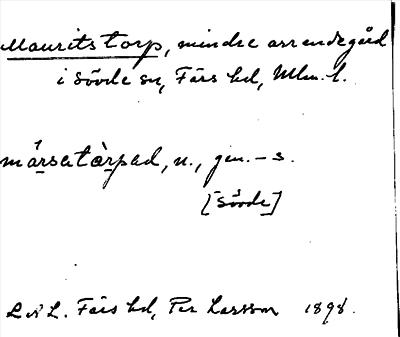 Mauritstorp, mindre arrendegård
i Sövde sn, Färs hd, Mlm. l.
mársatàrpad, n., gen. -s.
[Sövde]
L N L. Färs hd, Per Larsson 1898.